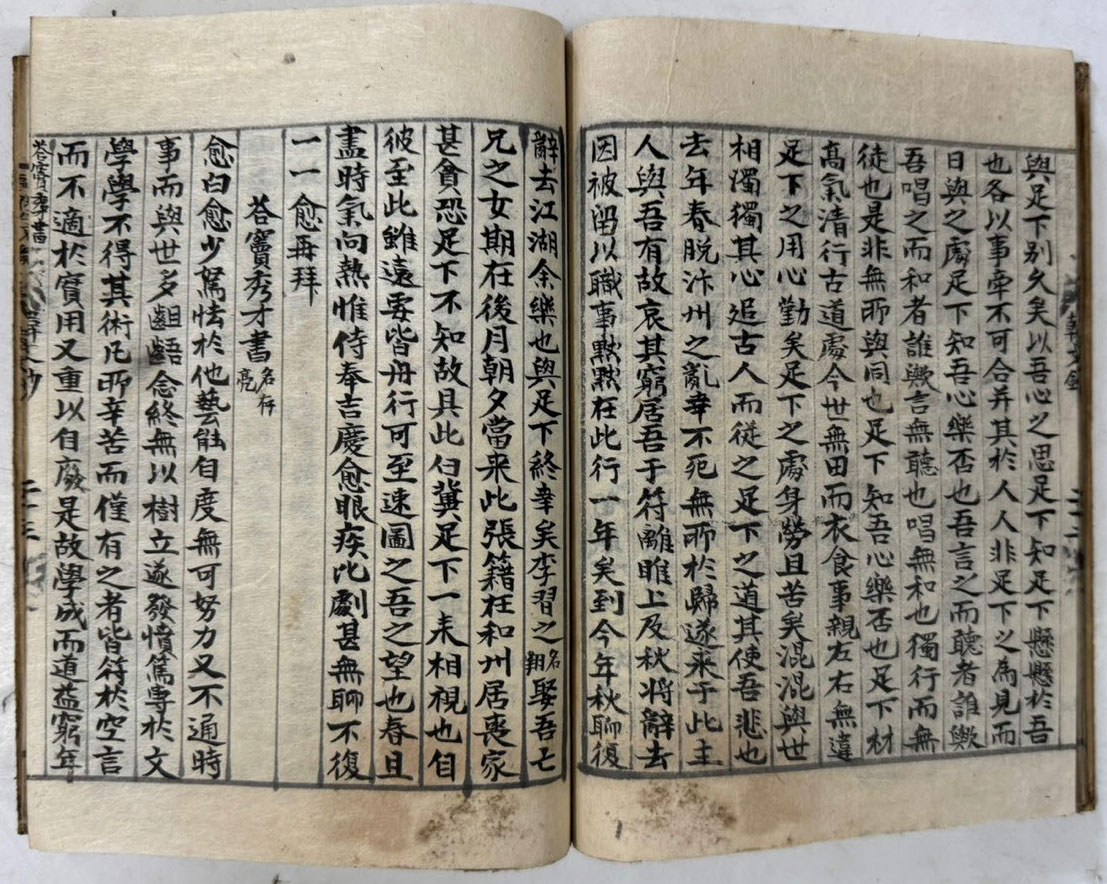 與足下別久矣以吾心之思足下知足下懸懸於吾
也各以事牽不可合并其於人人非足下之為見而
日與之處足下知吾心樂否也吾言之而聽者誰歟
吾唱之而和者誰歟言無聽也唱無和也獨行而無
徒也是非無所與同也足下知吾心樂否也足下材
高氣清行古道處今世無田而衣食事親左右無違
足下之用心勤矣足下之處身勞且苦矣混混與世
相濁獨其心追古人而從之足下之道其使吾悲也
去年春脫汴州之亂幸不死無所於歸遂来于此主
人與吾有故哀其窮居吾于符離睢上及秋将辭去
因被留以職事默默在此行一年矣到今年秋聊復
辭去江湖余樂也與足下終幸矣李習之名翔娶吾亡
兄之女期在後月朝夕當来此張籍在和州居喪家
甚貧恐足下不知故具此白冀足下一来相視也自
彼至此雖遠要皆舟行可至速圖之吾之望也春且
盡時氣向熱惟侍奉吉慶愈眼疾比劇甚無聊不復
一一愈再拜
荅竇秀才書名存亮
愈白愈少駑怯於他藝能自度無可努力又不通時
事而與世多齟齬念終無以樹立遂發憤篤專於文
學學不得其術凡所辛苦而僅有之者皆符於空言
而不適於實用又重以自廢是故學成而道益窮年
荅竇秀才書